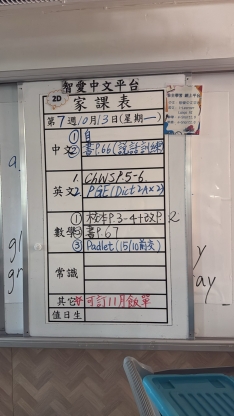 智愛中文平台
2D
家課表
第7週10月13日(星期一)
中文 ① 自
② 書P.66(說話訓練)
英文 1. C6WSP.5-6
2. PGE(Dict 2A×2)
數學 ① 校本P.3-4+改P.2
② 書P.67
③ Padlet(15/10前交)
常識
其它 可訂11月飯單
值日生